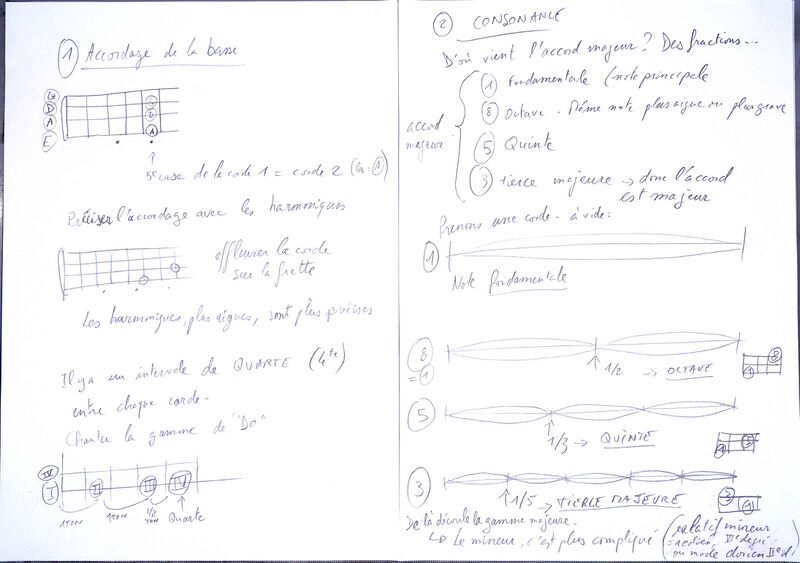 1 Accordage de la basse
G
D
A
E
G
D
A
5e case de la corde 1 = corde 2 (la: A)
Préciser l'accordage avec les harmoniques
effleurer la corde
sur la frette
Les harmoniques, plus aigues, sont plus précises
Il y a un intervale de QUARTE (4te)
entre chaque corde.
Chanter la gamme de "Do"
IV
I II III IV
1 TON 1 TON 1/2 TON Quarte
2 CONSONANCE
D'où vient l'accord majeur? Des fractions...
accord majeur
1 Fondamentale (note principale
8 Octave. Même note plus aigue ou plus grave
5 Quinte
3 Tierce majeure → donc l'accord
est majeur
Prenons une corde - à vide:
1
Note fondamentale
8
= 1
1/2 → OCTAVE
8
1
5
1/3 → QUINTE
5
1
3
1/5 → TIERCE MAJEURE
3
1
De là découle la gamme majeure.
↳ Le mineur, c'est plus compliqué
(relatif mineur
= aeolien,
ou mode dorien